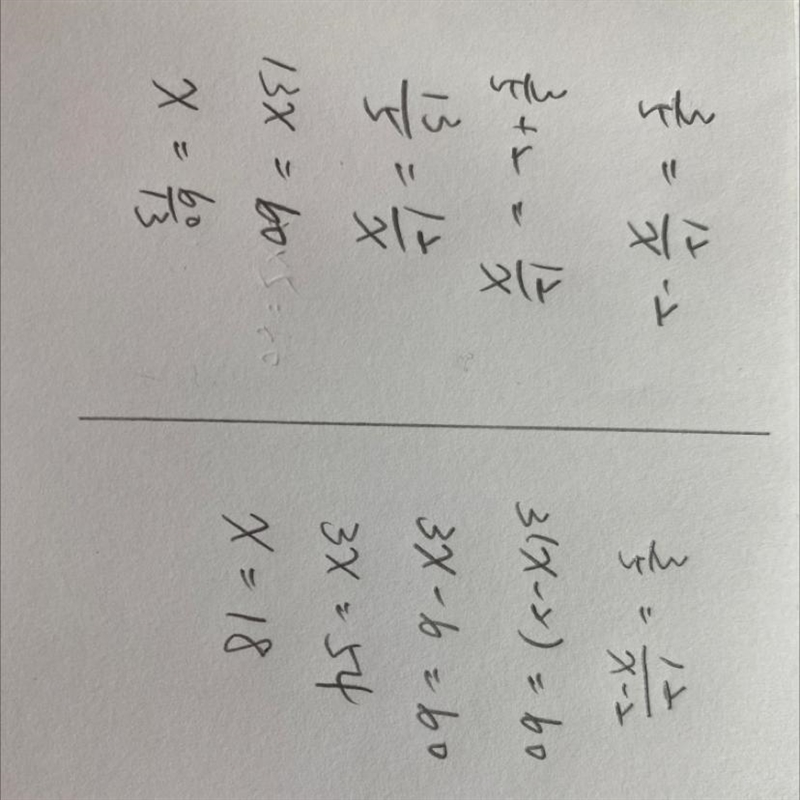 3/5 = 12/x - 2
3/5 + 2 = 12/x
13/5 = 12/x
13x = 60
x = 60/13
3/5 = 12/(x-2)
3(x-2) = 60
3x - 6 = 60
3x = 54
x = 18